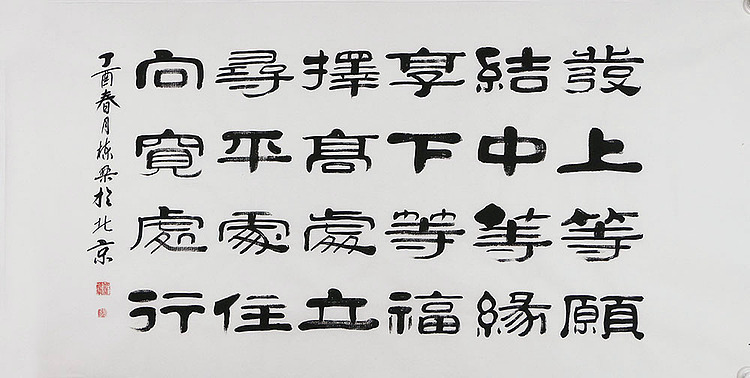 發上等願
結中等緣
享下等福
擇髙處立
尋平處住
向寬處行
丁酉春月栋梁於北京